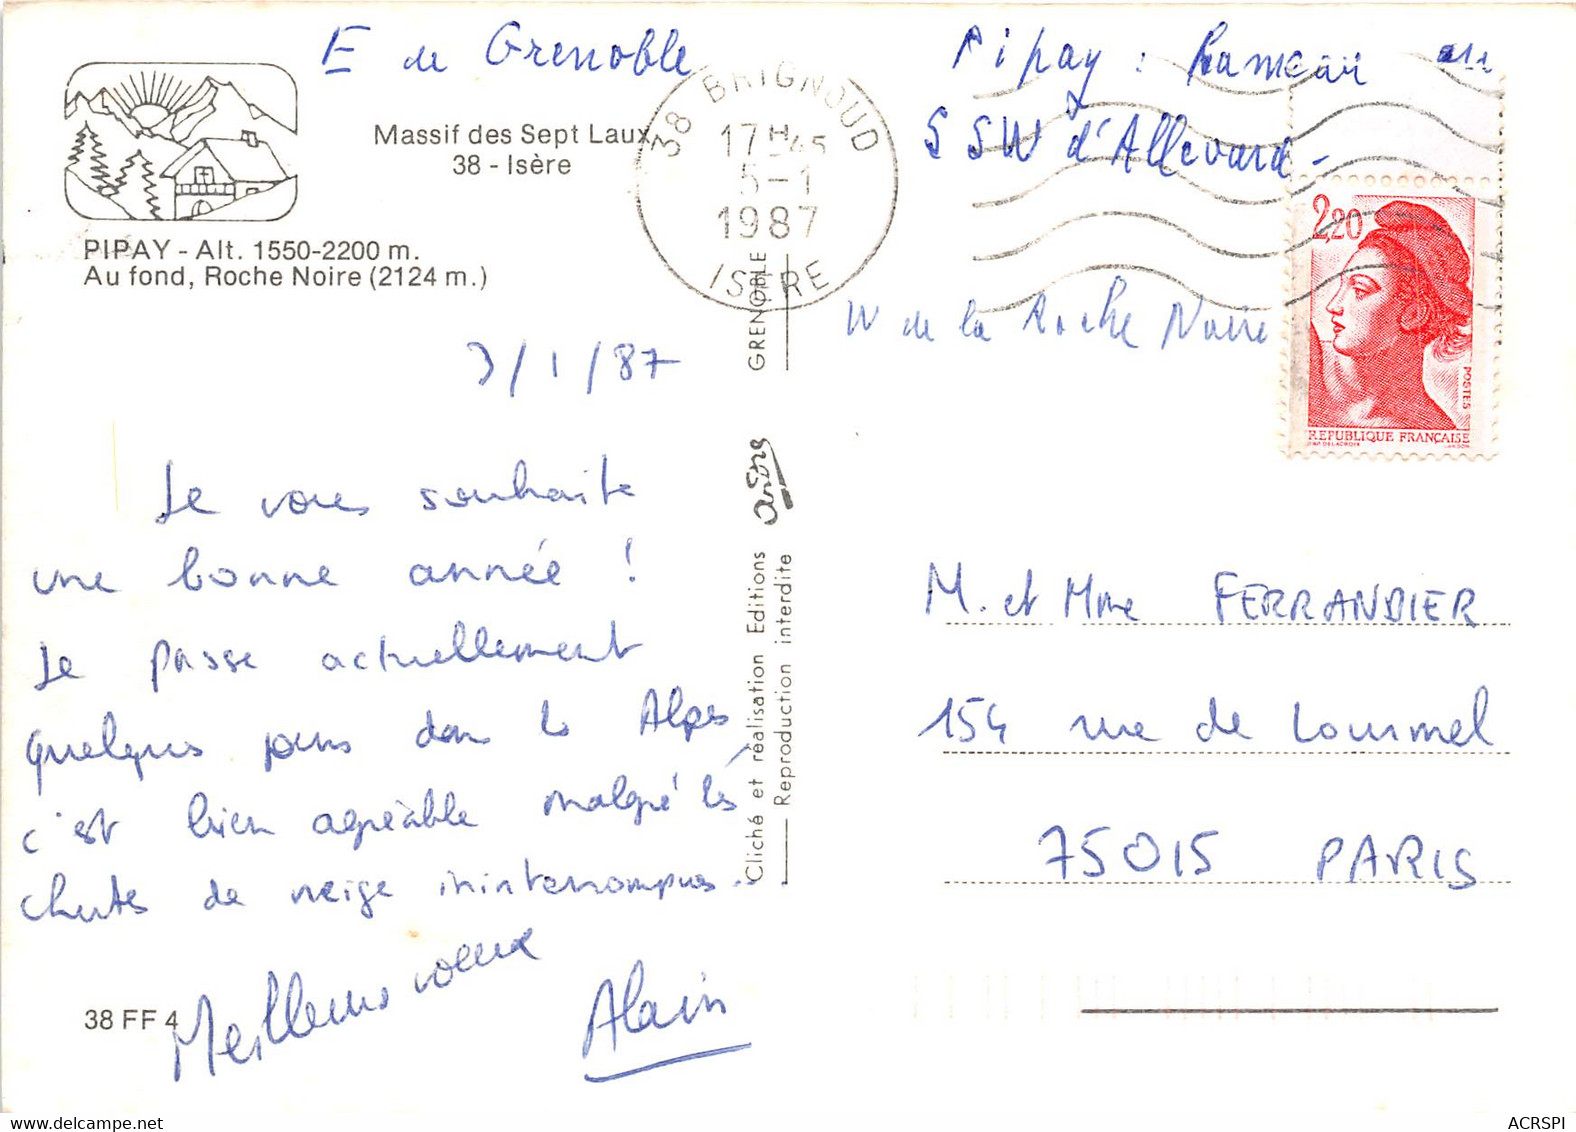 E de Grenoble
Massif des Sept Laux
38 - Isère
PIPAY - Alt. 1550-2200 m.
Au fond, Roche Noire (2124 m.)
3/1/87
Je vous souhaite
une bonne année !
Je passe actuellement
quelques jours dans les Alpes
c'est bien agréable malgré les
chutes de neige ininterrompues.
Meilleurs voeux
Alain
38 FF 4
38 BRIGNOUD
17H45
5-1
1987
ISERE
GRENOBLE
Cliché et réalisation Editions
Reproduction interdite
Pipay : hameau au
SSW d'Allevard -
W de la Roche Noire
2,20
POSTES
REPUBLIQUE FRANÇAISE
M. et Mme FERRANDIER
154 rue de Lourmel
75015 PARIS
www.delcampe.net
ACRSPI